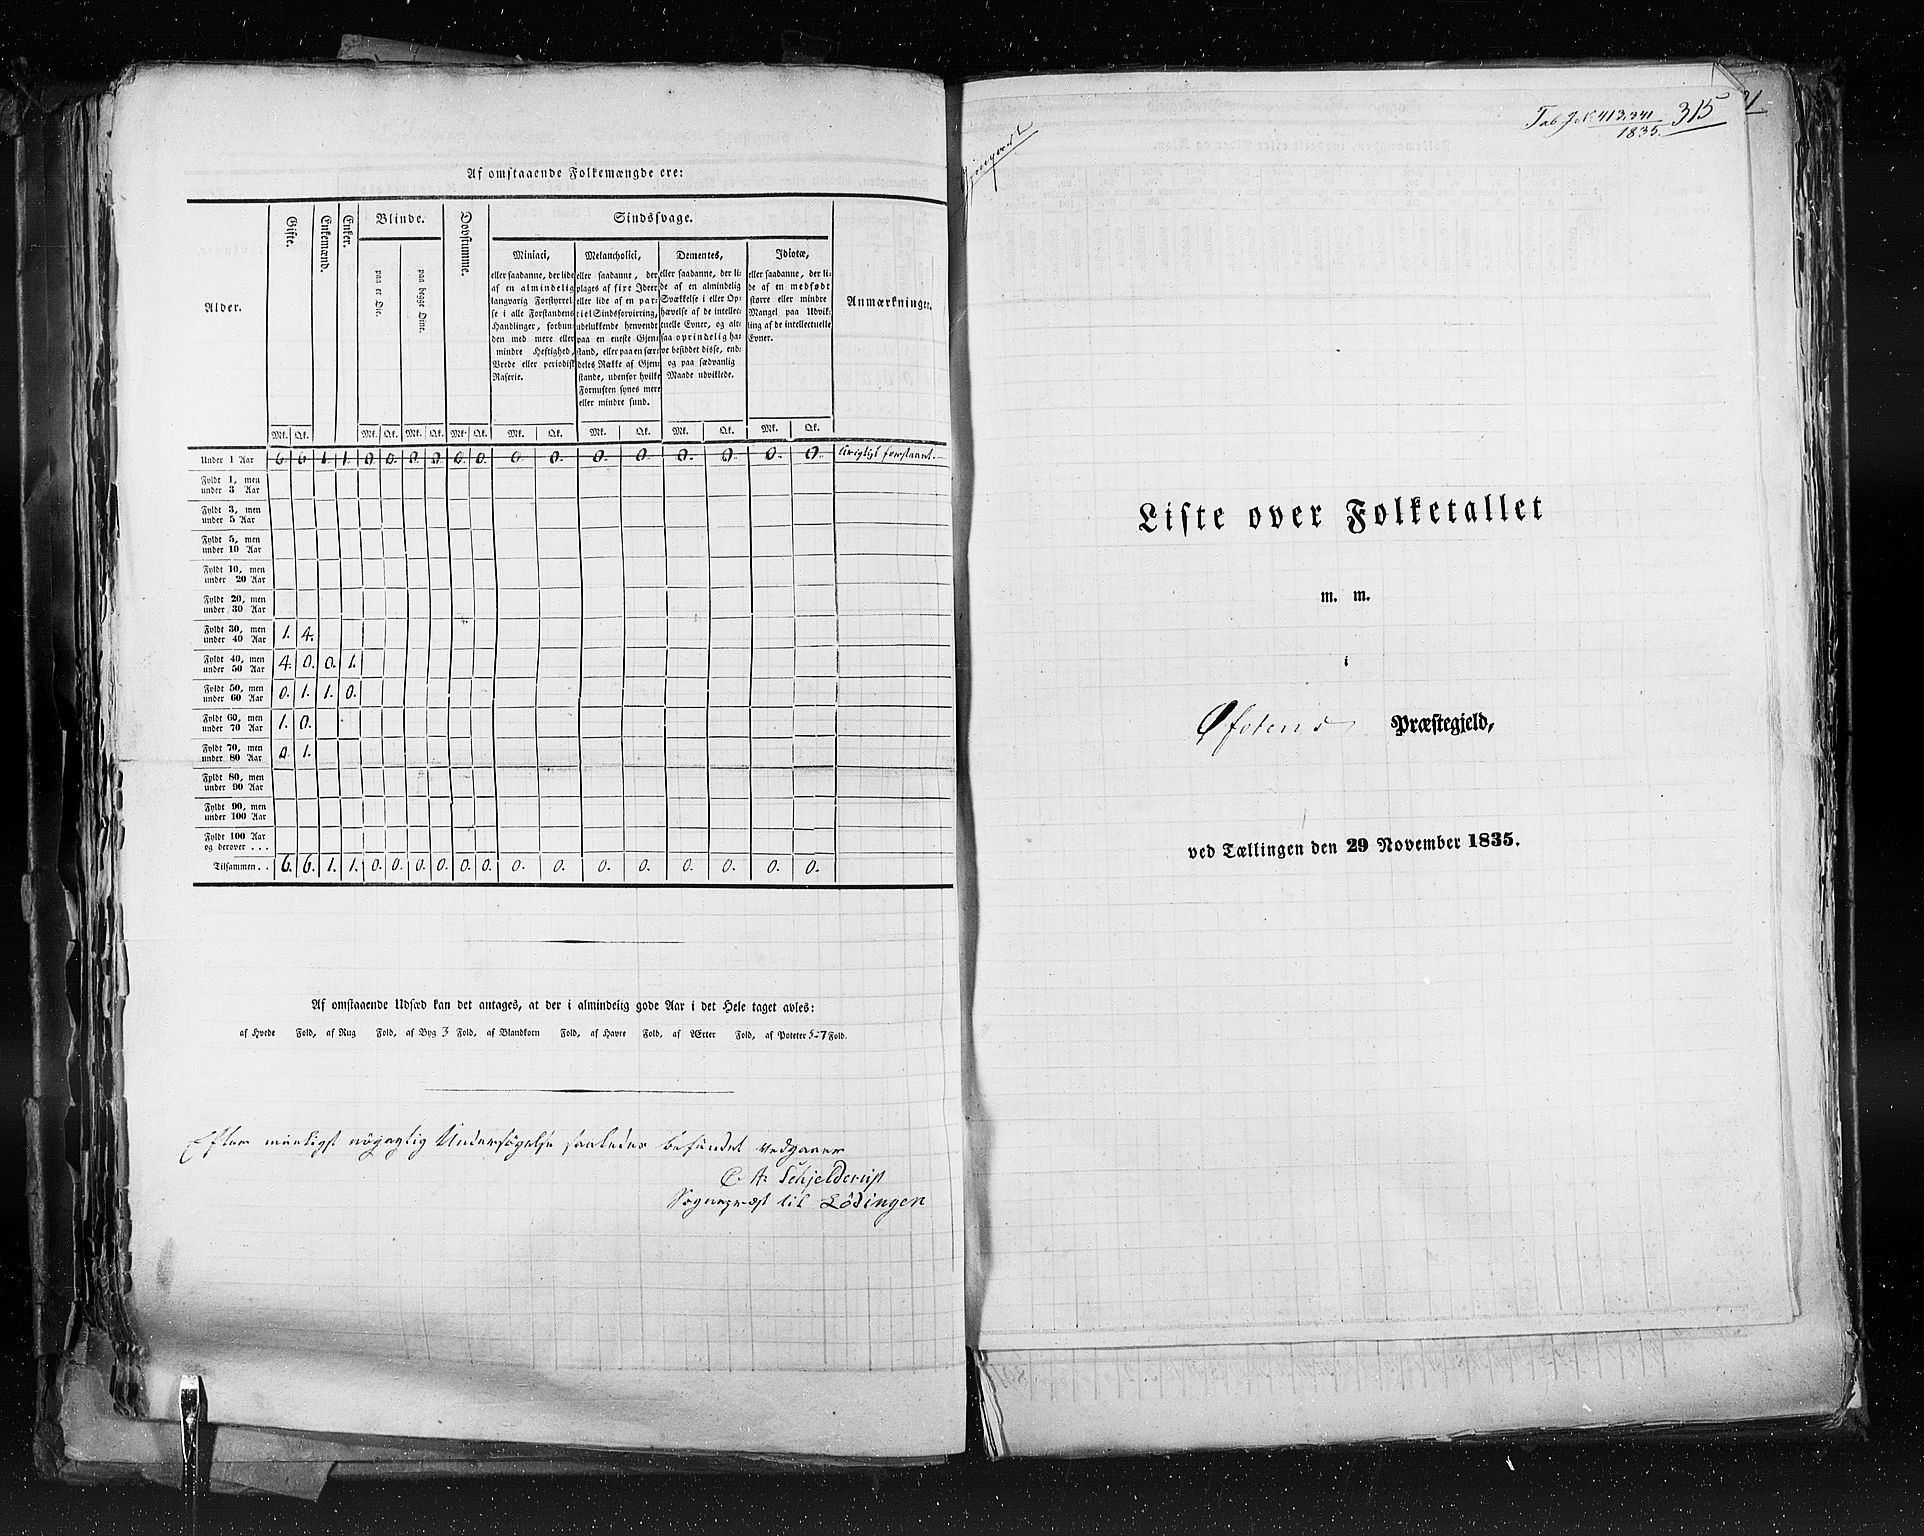 Af omstaaende Folkemængde ere:
Alder.
Gifte.
Enkemænd.
Enker.
Blinde.
paa et Øie.
paa begge Øine.
Døvstumme.
Sindssvage.
Miniaci,
eller saadanne, der lide
af en almindelig
langvarig Forstyrrel-
se i alle Forstandens
Handlinger, forbun-
den med mere eller
mindre Heftighed,
Vrede eller periodisk
Raserie.
Melancholici,
eller saadanne, der
plages af fixe Ideer
eller lide af en par-
tiel Sindsforvirring,
udelukkende henvendt
paa en eneste Gjen-
stand, eller paa en sær-
deles Række af Gjen-
stande, udenfor hvilke
Fornuften synes mere
eller mindre sund.
Dementes,
eller saadanne, der li-
de af en almindelig
Svækkelse i eller Op-
hævelse af de intellec-
tuelle Evner, og alt-
saa oprindelig ha-
ve besiddet disse, end-
og paa sædvanlig
Maade udviklede.
Idiotæ,
eller saadanne, der li-
de af en medfødt
større eller mindre
Mangel paa Udvik-
ling af de intellectuelle
Evner.
Anmærkninger.
Mk. Qk. Mk. Qk. Mk. Qk. Mk. Qk. Mk. Qk. Mk. Qk. Mk. Qk. Mk. Qk.
Under 1 Aar 6. 6. 1. 1. 0. 0. 0. 0. 0. 0. 0. 0. 0. 0. 0. 0. 0. 0.
Fyldt 1, men
under 3 Aar
Fyldt 3, men
under 5 Aar
Fyldt 5, men
under 10 Aar
Fyldt 10, men
under 20 Aar
Fyldt 20, men
under 30 Aar
Fyldt 30, men
under 40 Aar 1. 4.
Fyldt 40, men
under 50 Aar 4. 0. 0. 1.
Fyldt 50, men
under 60 Aar 0. 1. 1. 0.
Fyldt 60, men
under 70 Aar 1. 0.
Fyldt 70, men
under 80 Aar 0. 1.
Fyldt 80, men
under 90 Aar
Fyldt 90, men
under 100 Aar
Fyldt 100 Aar
og derover . . .
Tilsammen . . 6. 6. 1. 1. 0. 0. 0. 0. 0. 0. 0. 0. 0. 0. 0. 0. 0. 0.
Af omstaaende Udsæd kan det antages, at der i almindelig gode Aar i det Hele taget avles:
af Hvede Fold, af Rug Fold, af Byg 3 Fold, af Blandkorn Fold, af Havre Fold, af Ærter Fold, af Poteter 5-7 Fold.
Efter mueligst nøyagtig Undersøgelse saaledes befundet vedgaaer
C. A. Schjelderup
Sognepræst til Lødingen
Tab J N 413.341 315
1835.
Liste over Folketallet
m. m.
i
Ofotens Præstegjeld,
ved Tællingen den 29 November 1835.